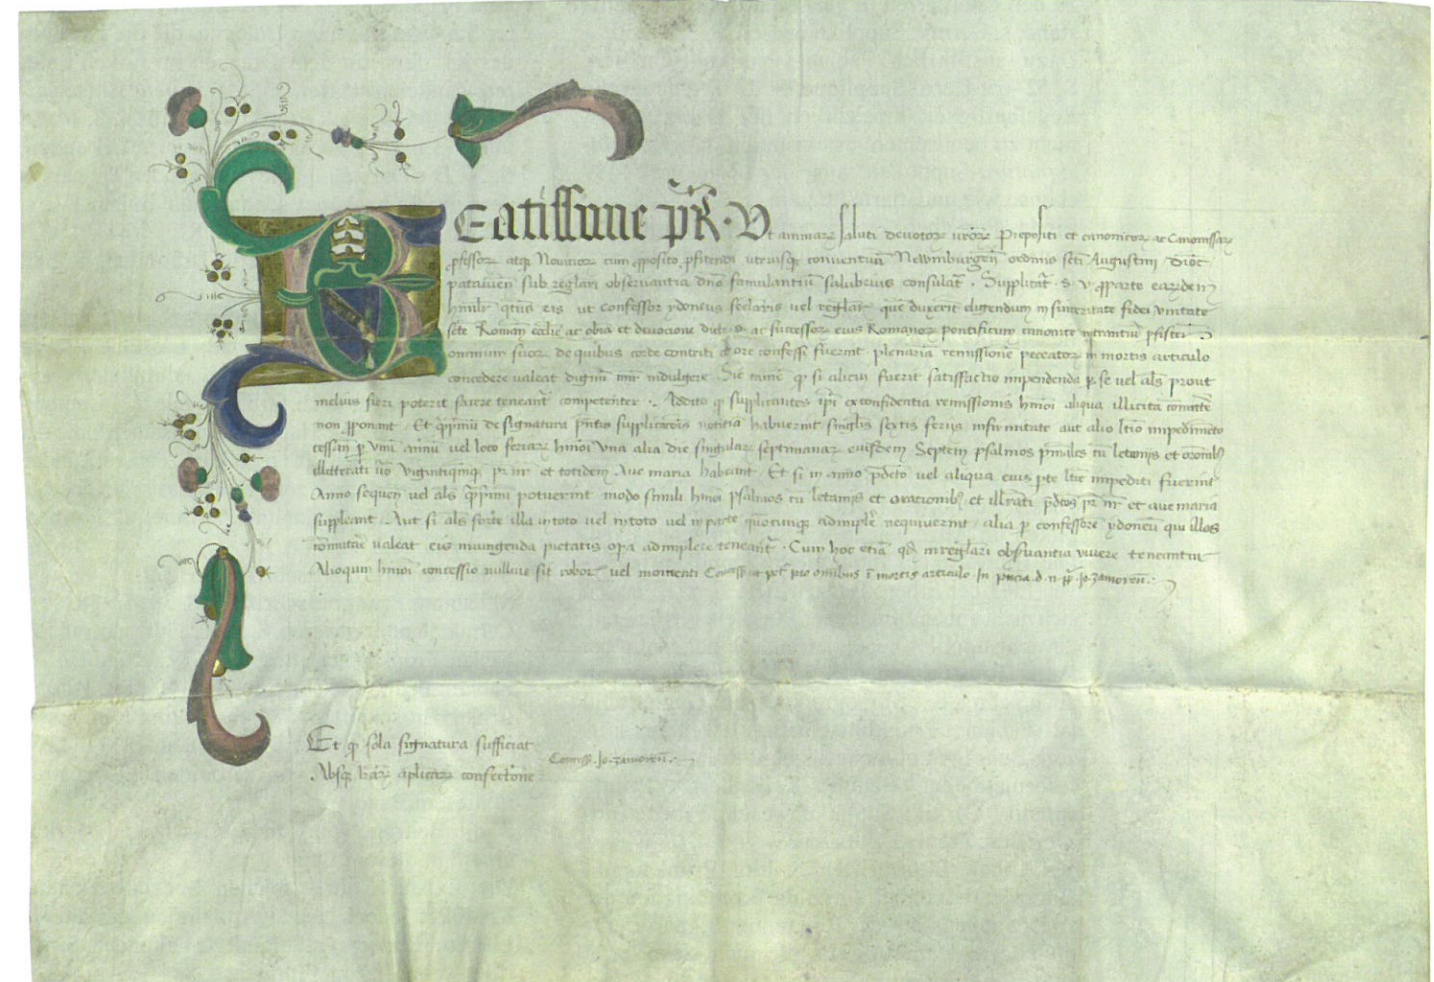 BEatissime pr̄. Ut animar saluti devotor vr̄or Prepositi et canonicor ac Canonissar
professor atq Novicior cum proposito profitendi utriusq conventuū Newmburgen̄ ordinis scti Augustini Dioc
patavien̄ sub reglari observantia dn̄o famulantiū salubrius consulat̄ . Supplicat̄ S v pro parte earūdem
humilr qtin̄s eis ut confessor ydoneus seclaris vel reglar quē duxerit eligendum in sinceritate fidei unitate
scte Roman̄ ecclie ac obīa et devocione S ac successor eius Romanor pontificum canonice intrantiū psisten
omnium suor de quibus corde contriti et ore confessi fuerint plenaria remissionē peccator in mortis articulo
concedere valeat dignem indulgere . Sic tamē q si alicui fuerit satisfactio impendenda p se vel als prout
melius fieri poterit facere teneant̄ competenter . Addito q supplicantes ipi ex confidentia remissionis hmōi aliqua illicita cōmittē
non proponant . Et qprimū de signatura pn̄tis supplicationis noticiā habuerint singlis sextis feriis infirmitate aut alio ltīo impedimēto
cessān p unū annū vel loco feriar hmōi una alia die singular septimanar eiusdem Septem psalmos pn̄iales cū letaniis et orōnib
illitterati vō vigintiquinq pr nr et totidem Ave maria habeant . Et si in anno pdcto vel aliqua eius pte ltīe impediti fuerint
Anno sequen̄ vel als qprimū potuerint modo simili hmōi psalmos cū letaniis et orationib et illrati pdctos pr nr et ave maria
suppleant . Aut si als forte illa in toto vel in toto vel in parte quocunq adimplē nequiverint alia p confessorē ydoneū qui illos
cōmutare valeat eis iniungenda pietatis opa adimplere teneant̄ . Cum hoc etiā qd in reglari obsvantia vivere teneantur
Alioquin hmōi concessio nullius sit robor vel momenti Concessum ut petr pro omnibus ī mortis articulo . In pn̄cia . d . n . pp . Jo . Zamoren̄ .
Et q sola signatura sufficiat
Absq lrar aplicar confectione
Concess . Jo . Zamoren̄ .